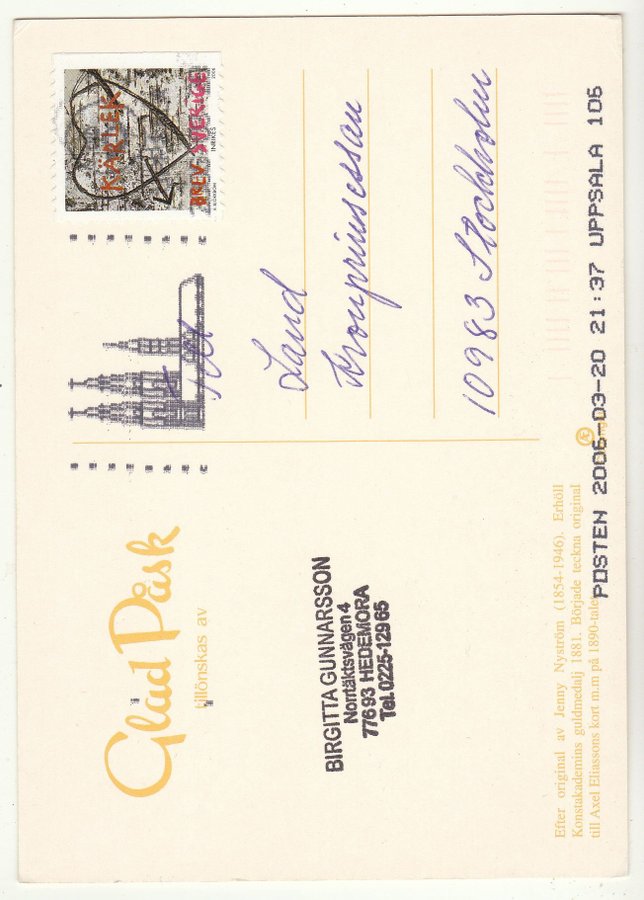 Glad Påsk
tillönskas av
BIRGITTA GUNNARSSON
Norrtäktsvägen 4
776 93 HEDEMORA
Tel. 0225-129 65
Efter original av Jenny Nyström (1854-1946). Erhöll
Konstakademins guldmedalj 1881. Började teckna original
till Axel Eliassons kort m.m på 1890-talet
KÄRLEK
BREV SVERIGE
INRIKES
2006
Till
Land
Kronprinsessan
10983 Stockholm
POSTEN 2006-03-20 21:37 UPPSALA 106